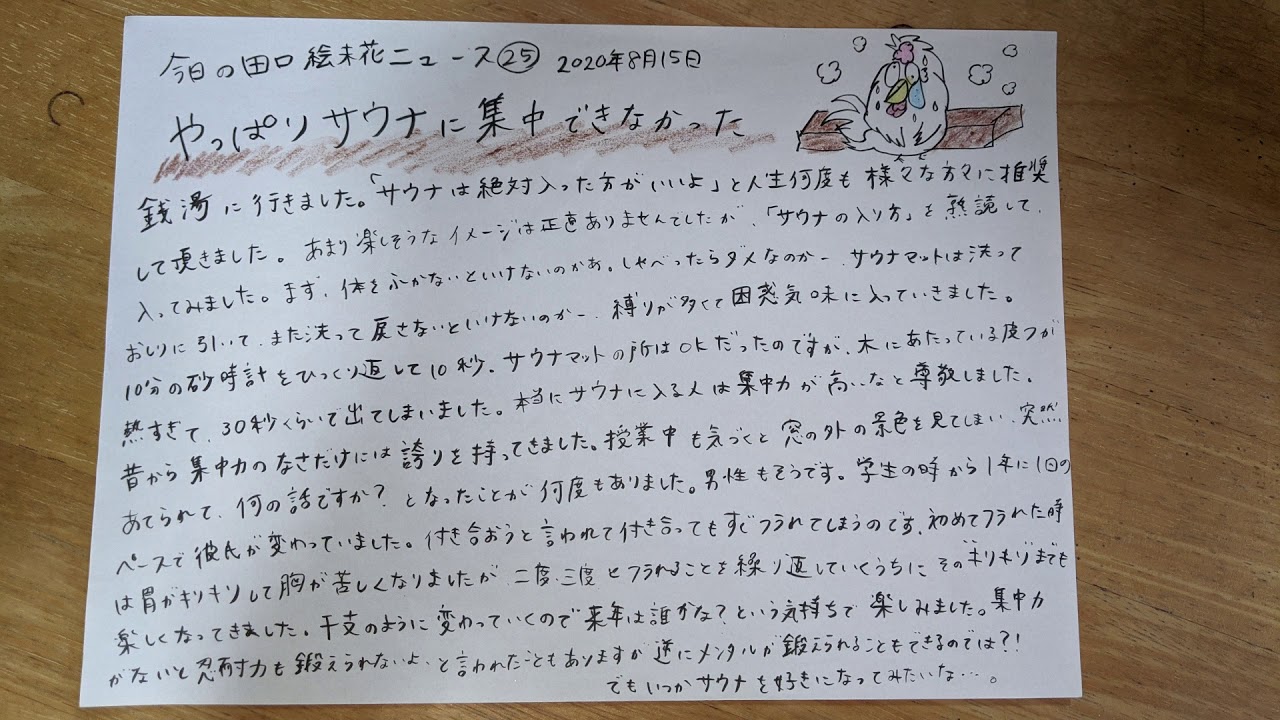 今日の田口絵未花ニュース㉕ 2020年8月15日
やっぱりサウナに集中できなかった
銭湯に行きました。「サウナは絶対入った方がいいよ」と人生何度も様々な方々に推奨
して頂きました。あまり楽しそうなイメージは正直ありませんでしたが、「サウナの入り方」を熟読して、
入ってみました。まず、体をふかないといけないのかぁ。しゃべったらダメなのかー、サウナマットは洗って
おしりに引いて、また洗って戻さないといけないのかー、縛りが多くて困惑気味に入っていきました。
10分の砂時計をひっくり返して10秒。サウナマットの所はOKだったのですが、木にあたっている皮フが
熱すぎて、30秒くらいで出てしまいました。本当にサウナに入る人は集中力が高いなと尊敬しました。
昔から集中力のなさだけには誇りを持ってきました。授業中も気づくと窓の外の景色を見てしまい、突然
あてられて、何の話ですか?となったことが何度もありました。男性もそうです。学生の時から1年に1回の
ペースで彼氏が変わっていました。付き合おうと言われて付き合ってもすぐフラれてしまうのです。初めてフラれた時
は胃がキリキリして胸が苦しくなりましたが、二度、三度とフラれることを繰り返していくうちにそのキリキリまでも
楽しくなってきました。干支のように変わっていくので来年は誰かな?という気持ちで楽しみました。集中力
がないと忍耐力も鍛えられないよ、と言われたこともありますが逆にメンタルが鍛えられることもできるのでは?!
でもいつかサウナを好きになってみたいな…。